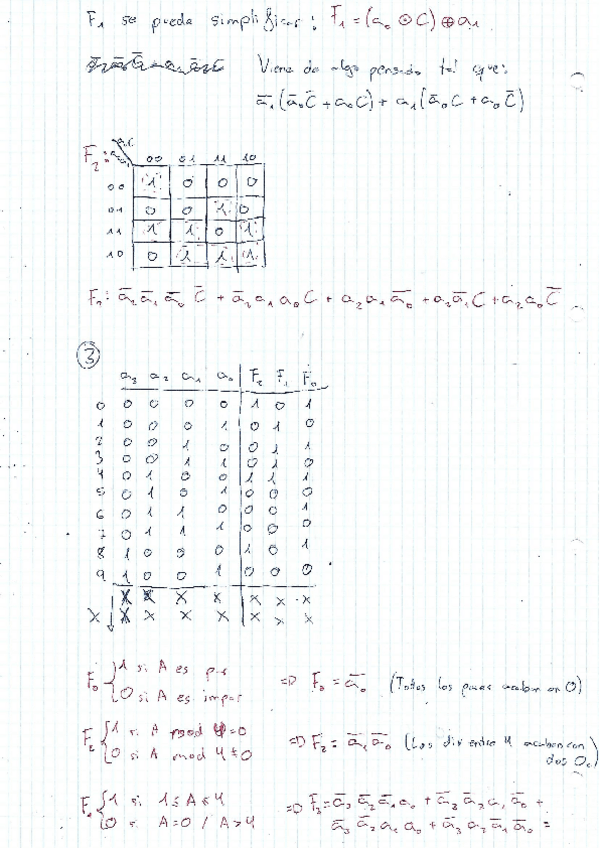 F₁ se puede simplificar: F₁ = (a₀ ⊙ C) ⊕ a₁
Viene de algo pensado tal que:
a̅₁(a̅₀C̅ + a₀C) + a₁(a̅₀C + a₀C̅)
F₂:
00 01 11 10
00 1 0 0 0
01 0 0 1 0
11 1 1 0 1
10 0 1 1 1
a̅₂a̅₁a̅₀C̅ + a̅₂a₁a₀C + a₂a₁a̅₀ + a₂a̅₁C + a₂a₀C̅
3
a₃ a₂ a₁ a₀ F₂ F₁ F₀
0 0 0 0 0 1 0 1
1 0 0 0 1 0 1 0
2 0 0 1 0 0 1 1
3 0 0 1 1 0 1 0
4 0 1 0 0 1 1 1
5 0 1 0 1 0 0 0
6 0 1 1 0 0 0 1
7 0 1 1 1 0 0 0
8 1 0 0 0 1 0 1
9 1 0 0 1 0 0 0
X X X X X X X
X ↓ X X X X X X X
F₀ { 1 si A es par
0 si A es impar
=> F₀ = a̅₀ (Todos los pares acaban en 0)
1 si A mod 4=0
0 si A mod 4≠0
=> F₂ = a̅₁a̅₀ (Los div entre 4 acaban con
dos 0s)
1 si 1≤A≤4
0 si A=0 / A>4